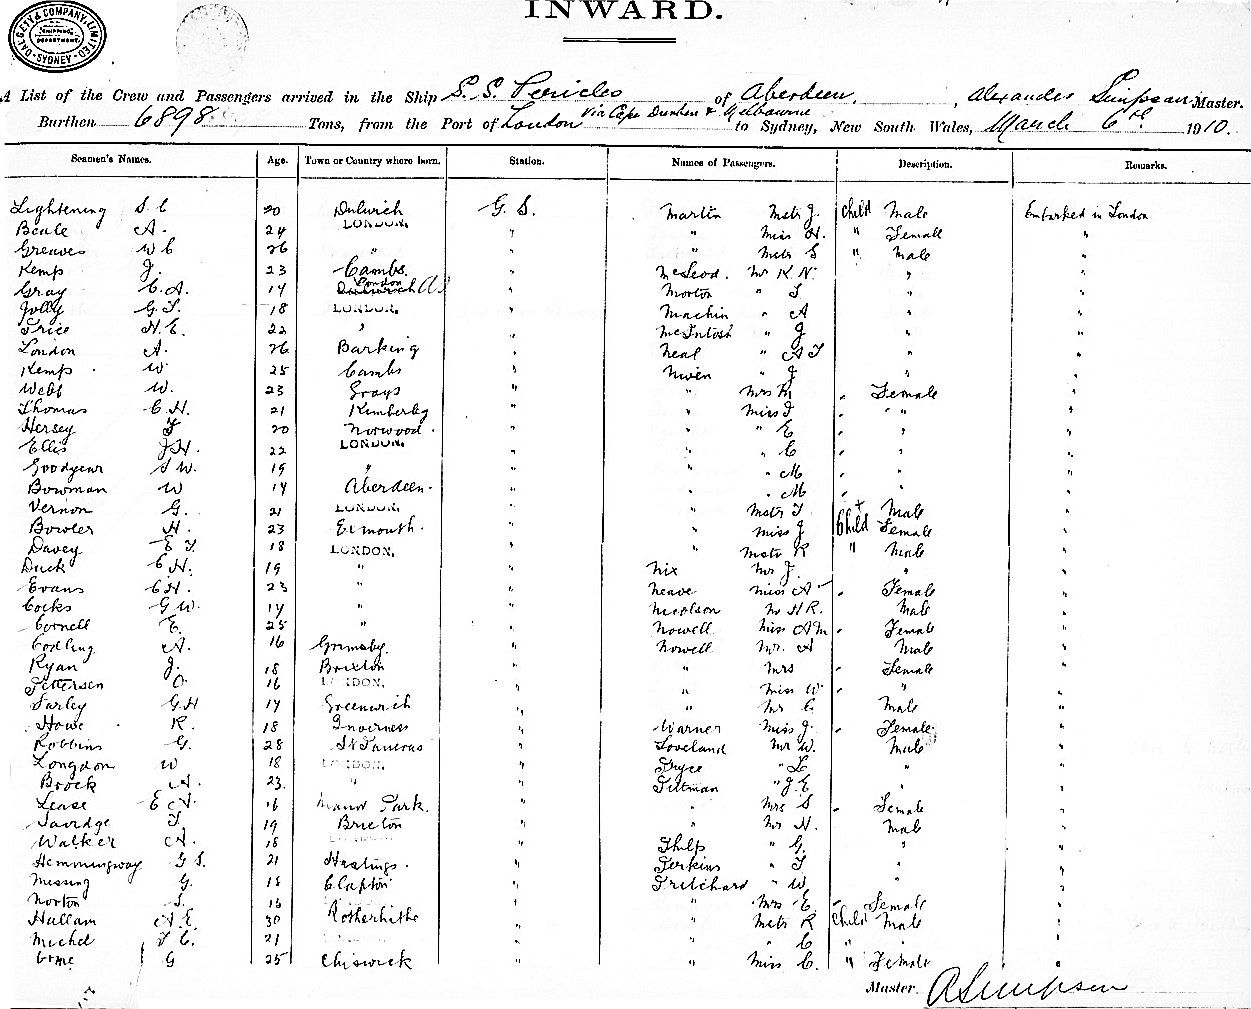 INWARD.
DALGETY & COMPANY, LIMITED
SHIPPING DEPARTMENT.
SYDNEY
A List of the Crew and Passengers arrived in the Ship S.S. Pericles of Aberdeen, Alexander Simpson Master.
Burthen 6898 Tons, from the Port of London via Cape Durban & Melbourne to Sydney, New South Wales, March 6th 1910.
Seamen's Names. Age. Town or Country where born. Station. Names of Passengers. Description. Remarks.
Lightening S. C 20 Dulwich G. S. Martin Mstr J. Child Male Embarked in London
Beale A. 24 LONDON. " " Miss H. " Female "
Greaves W C 26 " " " Mstr S " Male "
Kemp J. 23 Cambs. " McLeod. Mr K. N. " "
Gray C. A. 14 London " Morton " T " "
Jolly G. T. 18 LONDON. " Machin " A " "
Price H. E. 22 " " McIntosh " J " "
London A. 26 Barking " Neal " A T " "
Kemp W 25 Cambs " Niven " J " "
Webb W. 23 Grays " " Mrs M " Female "
Thomas C. H. 21 Kimberley " " Miss J " " "
Hersey F 20 Norwood. " " " E " " "
Ellis J H. 22 LONDON. " " " C " " "
Goodyear S W. 19 " " " " M " " "
Bowman W 14 Aberdeen. " " " M " " "
Vernon G. 21 LONDON. " " Mstr T + Male "
Bowler H. 23 Exmouth. " " Miss J Child Female "
Davey E T. 18 LONDON. " " Mstr R " Male "
Duck C H. 19 " " Nix Mr J. " "
Evans C H. 23 " " Neave Miss A " Female "
Cocks G W. 14 " " Nicolson Mr H R. Male "
Cornell E. 25 " " Nowell Miss A M " Female "
Codling A. 16 Grimsby. " Nowell Mr. A Male "
Ryan J. 18 Brixton " " Mrs " Female "
Petersen O. 16 LONDON. " " Miss W " " "
Farley G H 14 Greenwich " " Mr C. Male "
Howe R. 18 Inverness " Warner Miss J. " Female "
Robbins G. 28 St Pancras " Loveland Mr W. Male "
Longdon W 18 LONDON. " Pryce " L " "
Brock A. 23. " " Pittman " J. E. " "
Lease E A. 16 Manor Park. " " Mrs S " Female "
Savidge T. 19 " " Mr H. Male "
Walker A. 18 " Philp " G. " "
Hemmingway G S. 21 Hastings. " Perkins " T " "
Missing G. 18 Clapton " Pritchard " W. " "
Norton S. 16 Rotherhithe " " Mrs E. " Female "
Hallam A. E. 30 " " Mstr R Child Male "
Michel F C. 21 " " " C " " "
Orme G 25 Chiswick " " Miss C. " Female "
Master. A Simpson